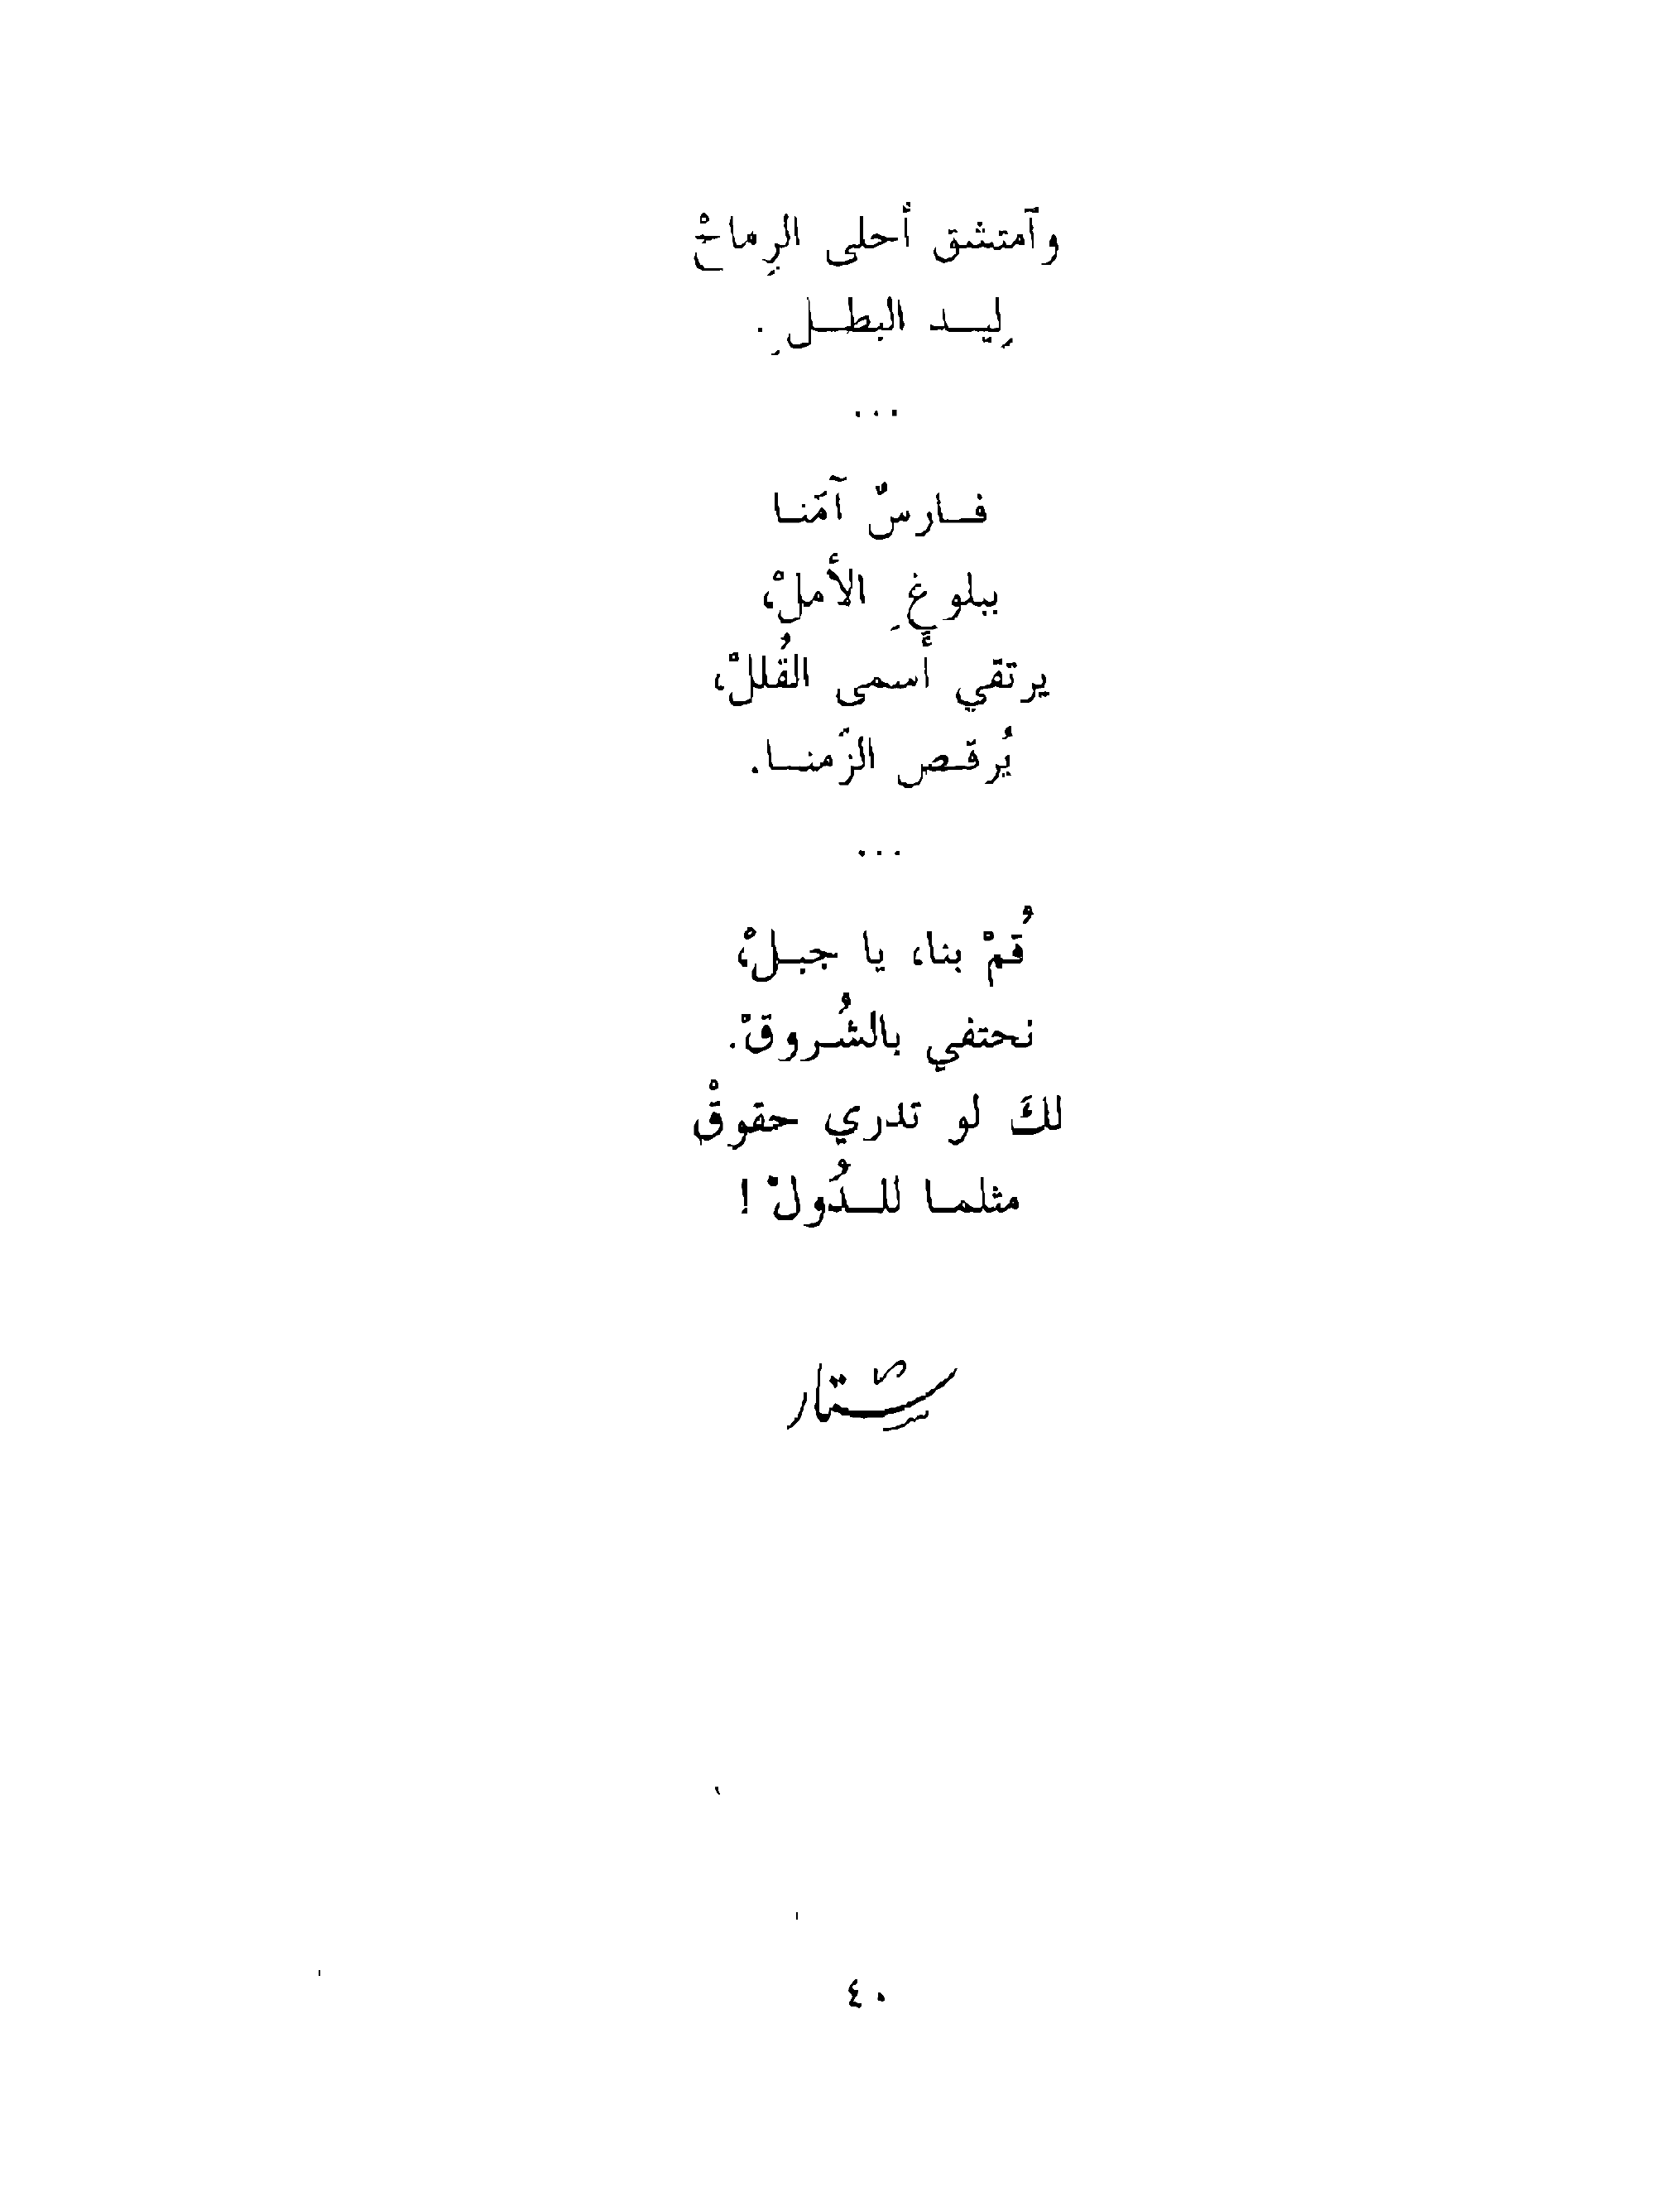 وآمتشق أحلى الرِماحْ
لِيد البطلِ.
...
فارسٌ آمَنا
ببلوغِ الأملْ،
يرتقي أسمى القُللْ،
يُرقص الزَمنا.
...
قُمْ بنا، يا جبلْ،
نحتفي بالشُروقْ.
لكَ لو تدري حقوقْ
مثلما للدُولْ!
ستار
٤٠